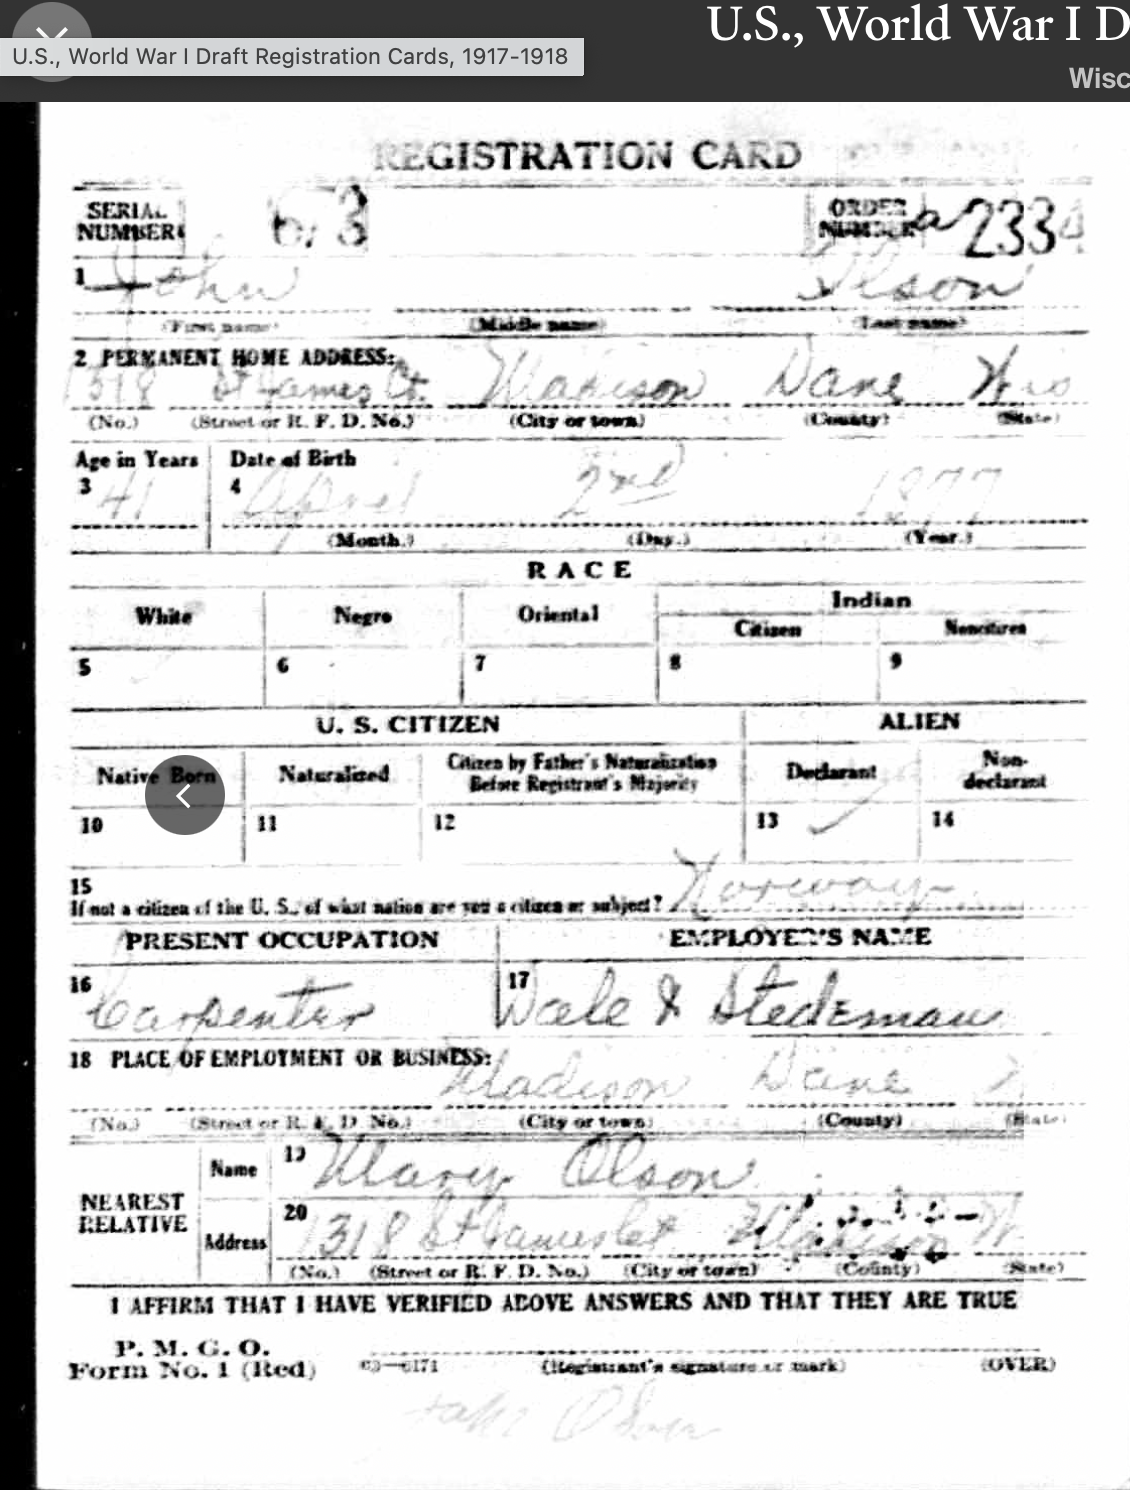 U.S., World War I D
U.S., World War I Draft Registration Cards, 1917-1918
Wisc
REGISTRATION CARD
SERIAL NUMBER 3 ORDER NUMBER a 2334
1 John Olson
(First name) (Middle name) (Last name)
2 PERMANENT HOME ADDRESS:
1318 St James Ct. Madison Dane Wis
(No.) (Street or R. F. D. No.) (City or town) (County) (State)
Age in Years Date of Birth
3 41 4 April 2nd 1877
(Month.) (Day.) (Year.)
RACE
White Negro Oriental Indian
Citizen Noncitizen
5 6 7 8 9
U. S. CITIZEN ALIEN
Native Born Naturalized Citizen by Father's Naturalization Before Registrant's Majority Declarant Non-declarant
10 11 12 13 ✓ 14
15
If not a citizen of the U. S., of what nation are you a citizen or subject? Norway
PRESENT OCCUPATION EMPLOYER'S NAME
16 Carpenter 17 & Stedeman
18 PLACE OF EMPLOYMENT OR BUSINESS:
Madison Dane
(No.) (Street or R. F. D. No.) (City or town) (County) (State)
NEAREST RELATIVE
Name 19 Mary Olson
Address 20 1318 St James Ct Madison W
(No.) (Street or R. F. D. No.) (City or town) (County) (State)
I AFFIRM THAT I HAVE VERIFIED ABOVE ANSWERS AND THAT THEY ARE TRUE
P. M. G. O.
Form No. 1 (Red) 03—6171 (Registrant's signature or mark) (OVER)
John Olson